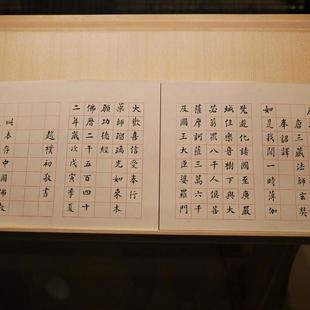 唐三藏法師玄奘
奉詔譯
如是我聞一時薄伽
梵遊化諸國至廣嚴
城住樂音樹下與大
苾芻眾八千人俱菩
薩摩訶薩三萬六千
及國王大臣婆羅門
大歡喜信受奉行
藥師瑠璃光如來本
願功德經
佛曆二千五百四十
二年歲次戊寅季夏
趙樸初敬書
此本存中國佛教